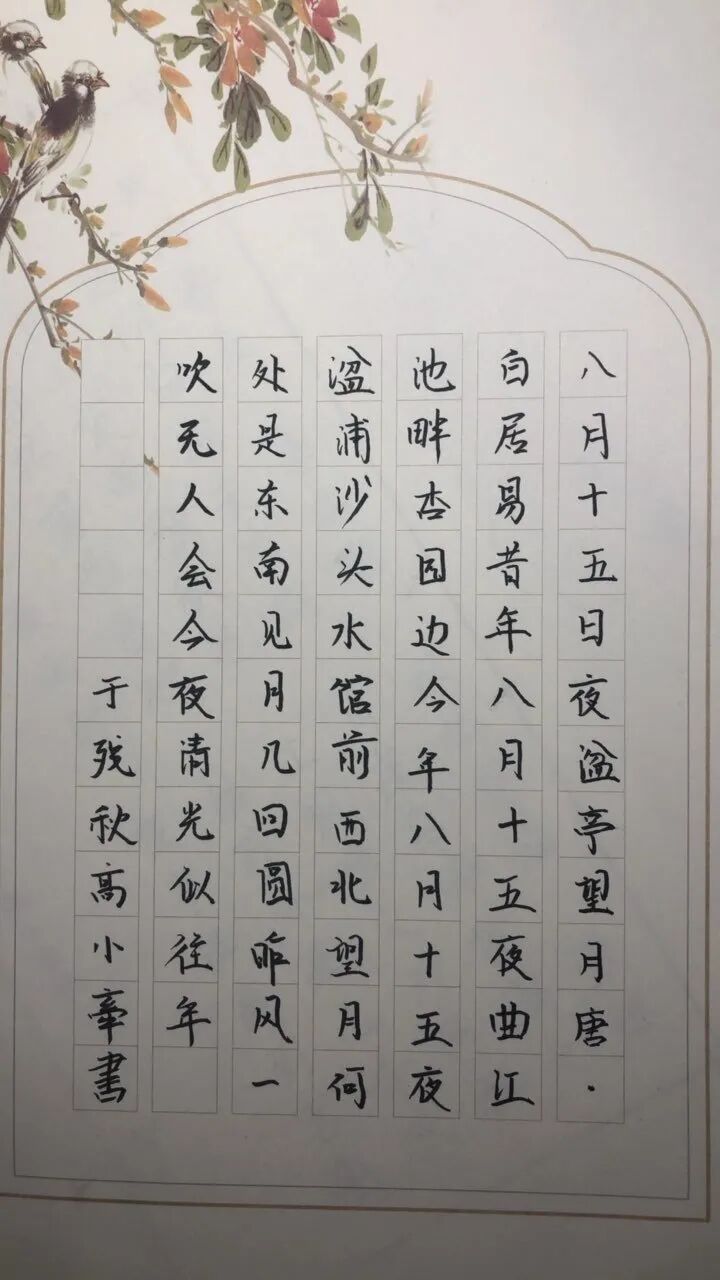 八月十五日夜湓亭望月唐·
白居易昔年八月十五夜曲江
池畔杏园边今年八月十五夜
湓浦沙头水馆前西北望月何
处是东南见月几回圆昨风一
吹无人会今夜清光似往年
于残秋高小牵书